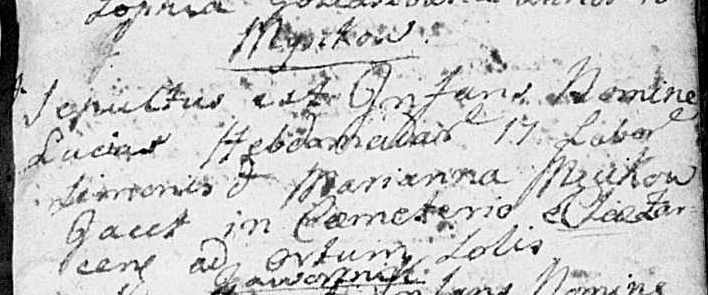 Sophia
Myszkow.
Sepultus est Infans Nomine
Lucias Hebdomadar 17 Labor
Simonis & Marianna Myszkow
Jacet in Cæmeterio
cens ad ortum Solis
Jaworznik
Infans Nomine